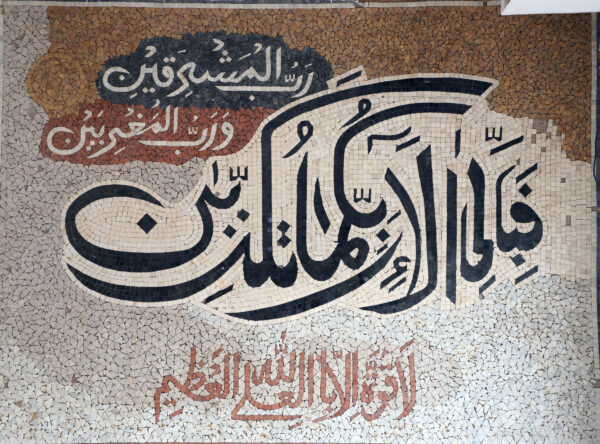 رَبُّ الْمَشْرِقَيْنِ
وَرَبُّ الْمَغْرِبَيْنِ
فَبِأَيِّ آلَاءِ رَبِّكُمَا تُكَذِّبَانِ
لَا قُوَّةَ إِلَّا بِاللَّهِ الْعَلِيِّ الْعَظِيمِ